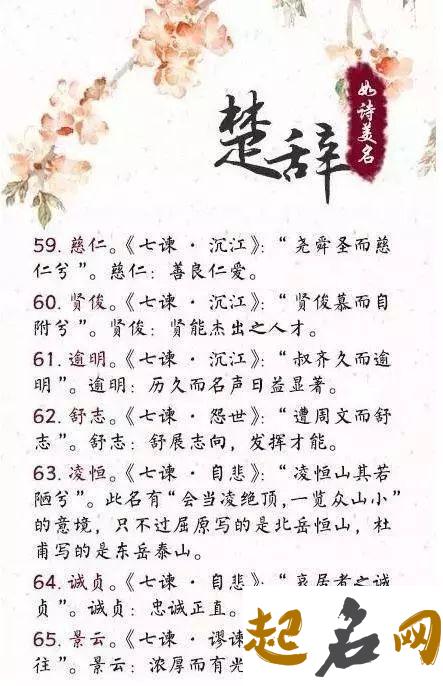 楚辞
如诗美名
59. 慈仁。《七谏·沉江》：“尧舜圣而慈
仁兮”。慈仁：善良仁爱。
60. 贤俊。《七谏·沉江》：“贤俊慕而自
附兮”。贤俊：贤能杰出之人才。
61. 逾明。《七谏·沉江》：“叔齐久而逾
明”。逾明：历久而名声日益显著。
62. 舒志。《七谏·怨世》：“遭周文而舒
志”。舒志：舒展志向，发挥才能。
63. 凌恒。《七谏·自悲》：“凌恒山其若
陋兮”。此名有“会当凌绝顶，一览众山小”
的意境，只不过屈原写的是北岳恒山，杜
甫写的是东岳泰山。
64. 诚贞。《七谏·自悲》：“哀居者之诚
贞”。诚贞：忠诚正直。
65. 景云。《七谏·谬谏
往”。景云：浓厚而有光
起名网